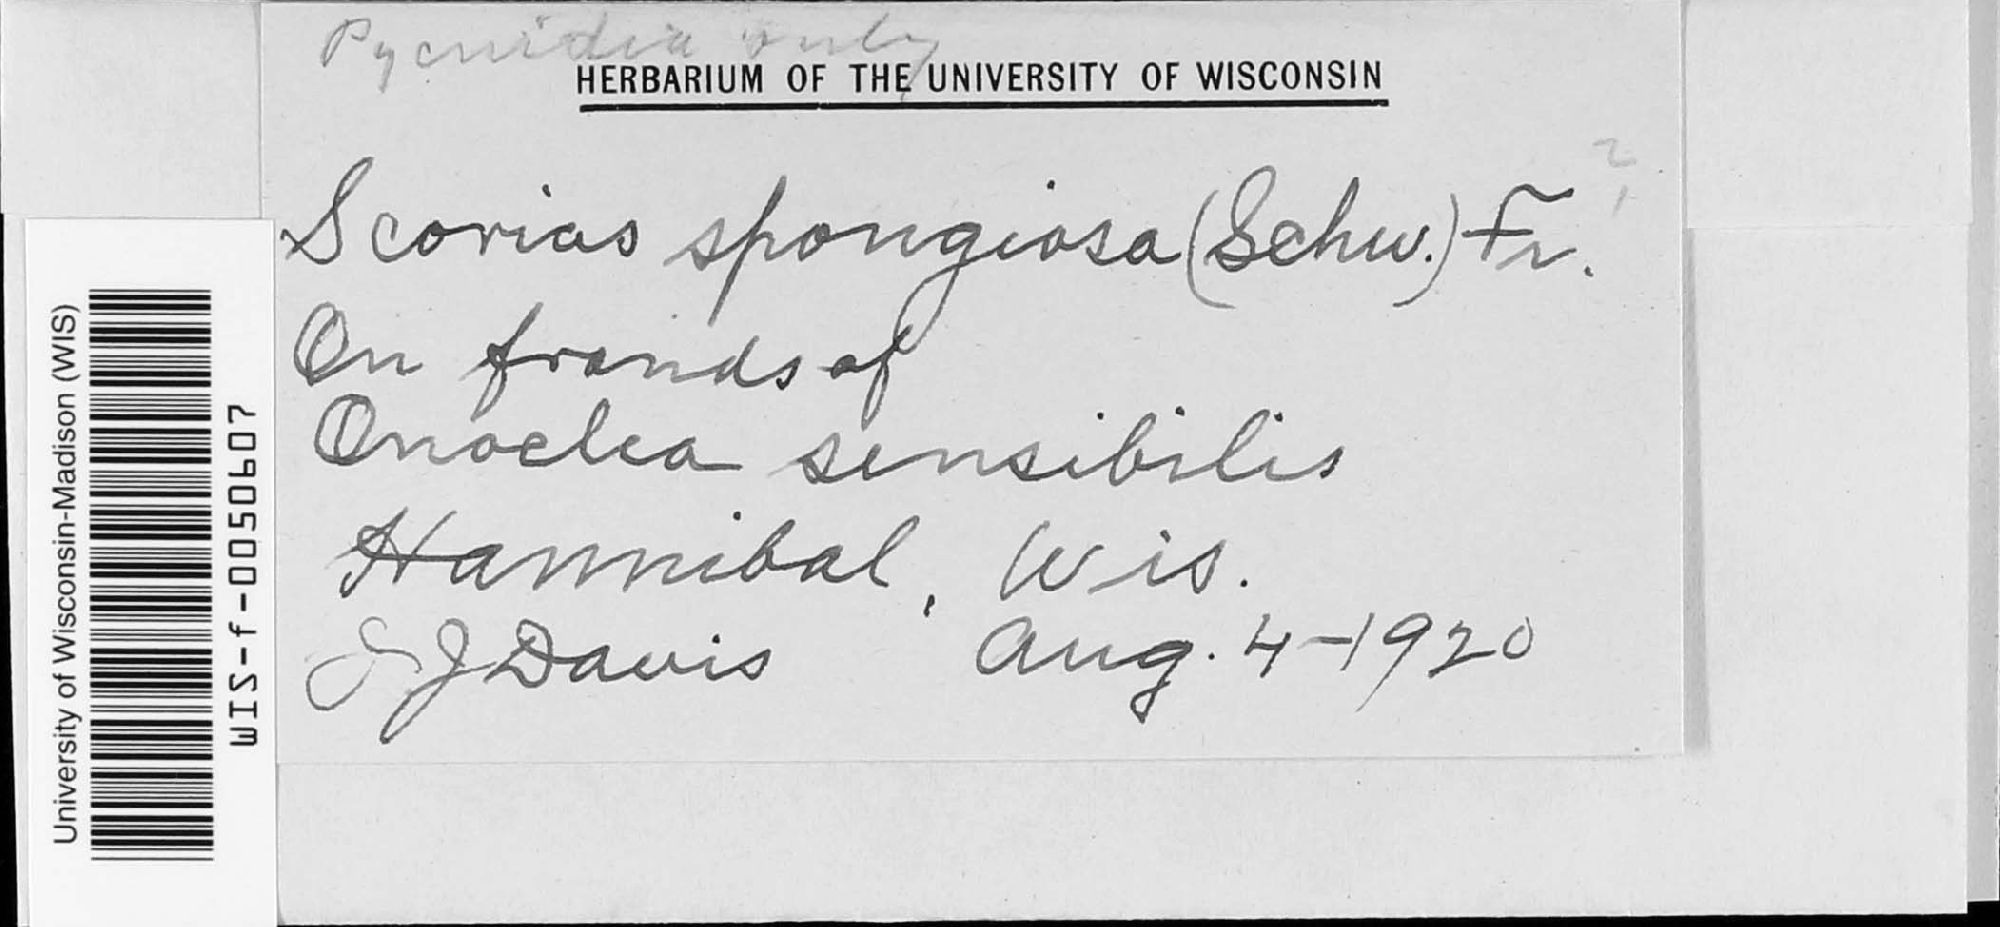 Pycnidia only
HERBARIUM OF THE UNIVERSITY OF WISCONSIN
?
Scorias spongiosa (Schw.) Fr.
On fronds of
Onoclea sensibilis
Hannibal, Wis.
J J Davis Aug. 4-1920
University of Wisconsin-Madison (WIS)
WIS-f-0050607